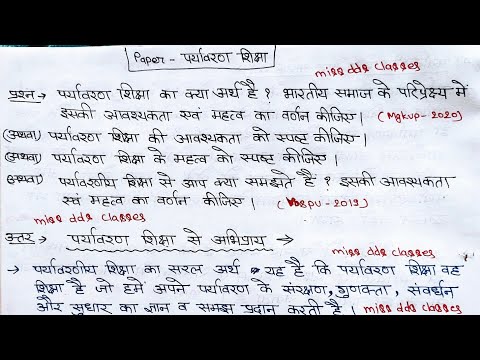 Paper - पर्यावरण शिक्षा
miss dds classes
प्रश्न → पर्यावरण शिक्षा का क्या अर्थ है ? भारतीय समाज के परिप्रेक्ष्य में
इसकी आवश्यकता एवं महत्व का वर्णन कीजिए। (Mgkvp-2020)
(अथवा) पर्यावरण शिक्षा की आवश्यकता को स्पष्ट कीजिए।
(अथवा) पर्यावरण शिक्षा के महत्व को स्पष्ट कीजिए।
(अथवा) पर्यावरणीय शिक्षा से आप क्या समझते हैं ? इसकी आवश्यकता
एवं महत्व का वर्णन कीजिए। (VBSPU-2019)
miss dds classes
उत्तर → पर्यावरण शिक्षा से अभिप्राय →
miss dds classes
→ पर्यावरणीय शिक्षा का सरल अर्थ यह है कि पर्यावरण शिक्षा वह
शिक्षा है जो हमे अपने पर्यावरण के संरक्षण, गुणवत्ता, संवर्धन
और सुधार का ज्ञान व समझ प्रदान करती है। miss dds classes